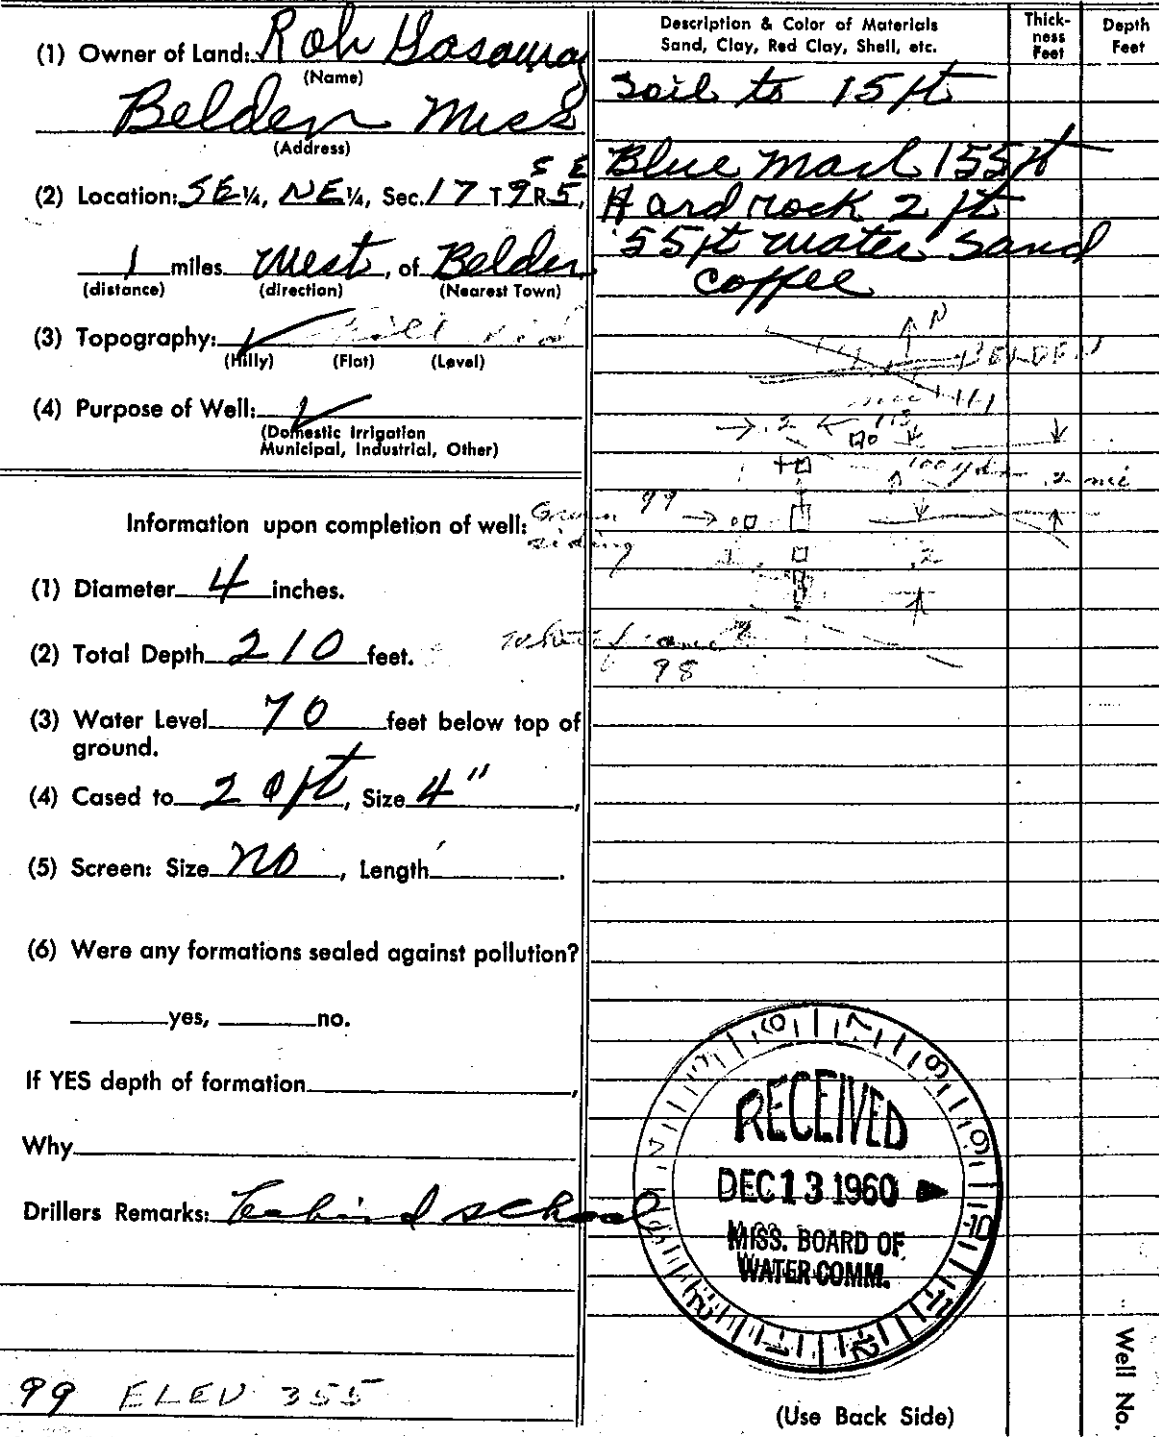 (1) Owner of Land: Rob Gasaway
(Name)
Belden Miss
(Address)
(2) Location: SE ¼, NE ¼, Sec. 17 T 9 S R 5 E,
1 miles West, of Belden
(distance) (direction) (Nearest Town)
(3) Topography: ✓ Hill side
(Hilly) (Flat) (Level)
(4) Purpose of Well: ✓
(Domestic Irrigation
Municipal, Industrial, Other)
Information upon completion of well:
(1) Diameter 4 inches.
(2) Total Depth 210 feet.
(3) Water Level 70 feet below top of
ground.
(4) Cased to 20 ft, Size 4",
(5) Screen: Size no, Length
(6) Were any formations sealed against pollution?
yes, no.
If YES depth of formation,
Why
Drillers Remarks: behind school
99 ELEV 355
Description & Color of Materials
Sand, Clay, Red Clay, Shell, etc.
Thick-
ness
Feet
Depth
Feet
Soil to 15 ft
Blue Marl 155 ft
Hard rock 2 ft
55 ft water sand
coffee
N
BELDEN
.2
100 yds .2 mi
Green 99
siding
.2
White frame
98
6 7 8 9 10 11 12 1 2 3 4 5
RECEIVED
DEC 13 1960
MISS. BOARD OF
WATER COMM.
(Use Back Side)
Well No.